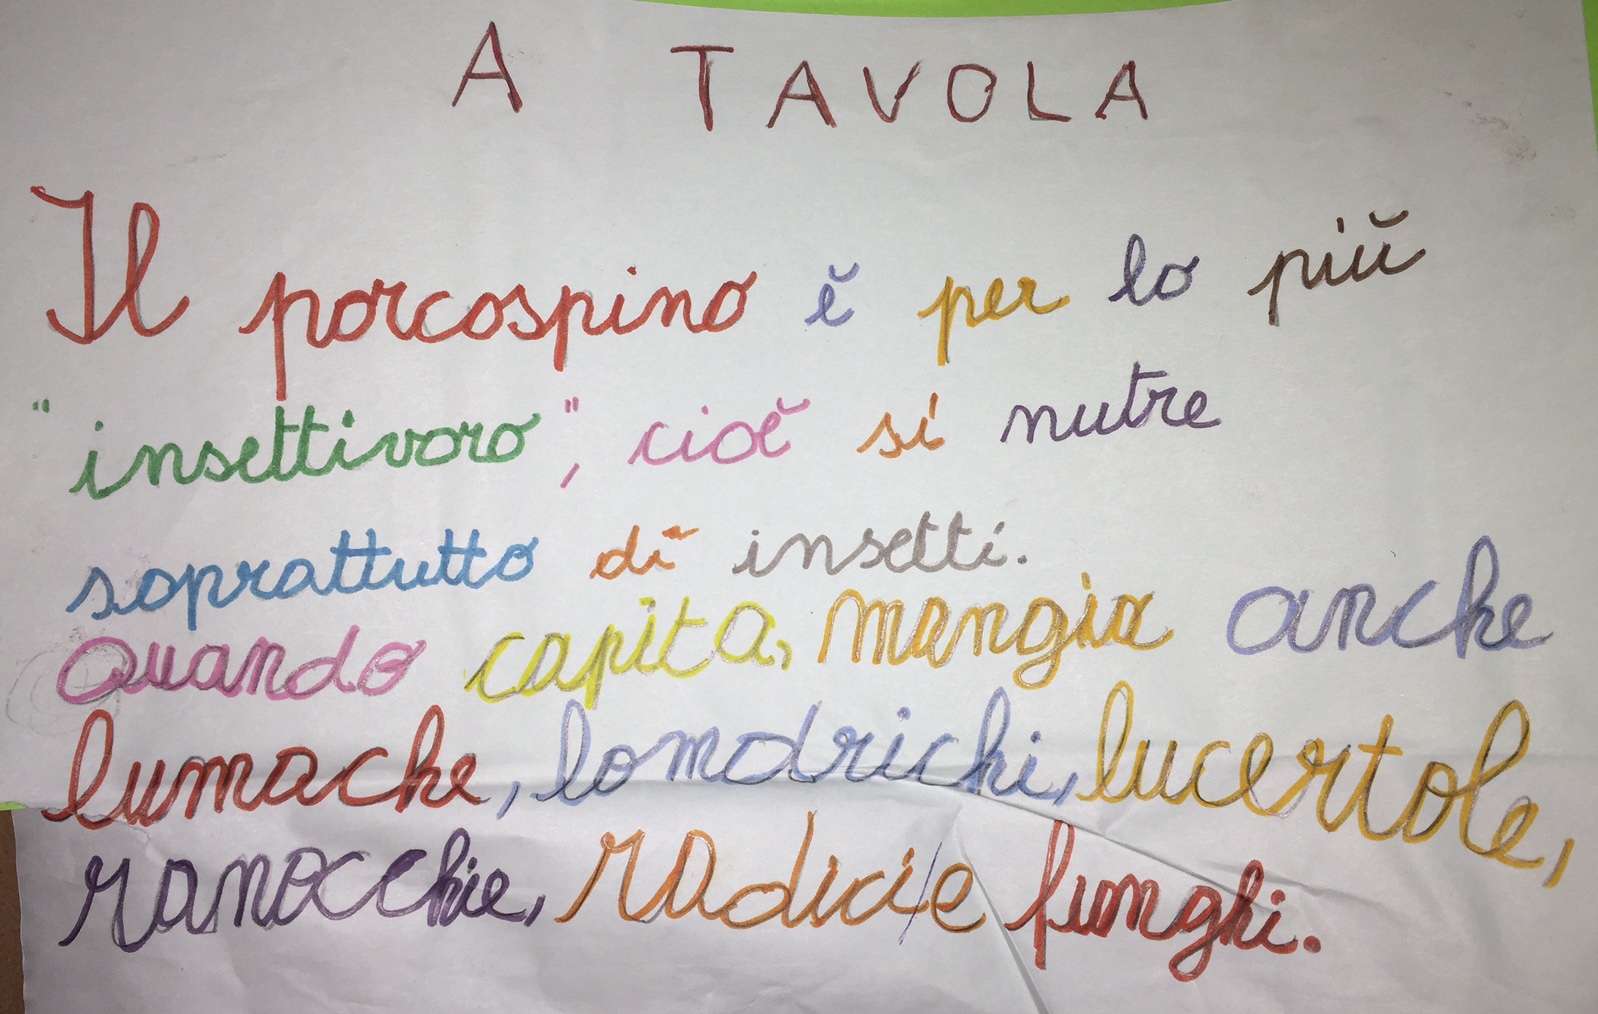 A TAVOLA
Il porcospino è per lo più
"insettivoro", cioè si nutre
soprattutto di insetti.
Quando capita, mangia anche
lumache, lomdrichi, lucertole,
ranocchie, radici e funghi.